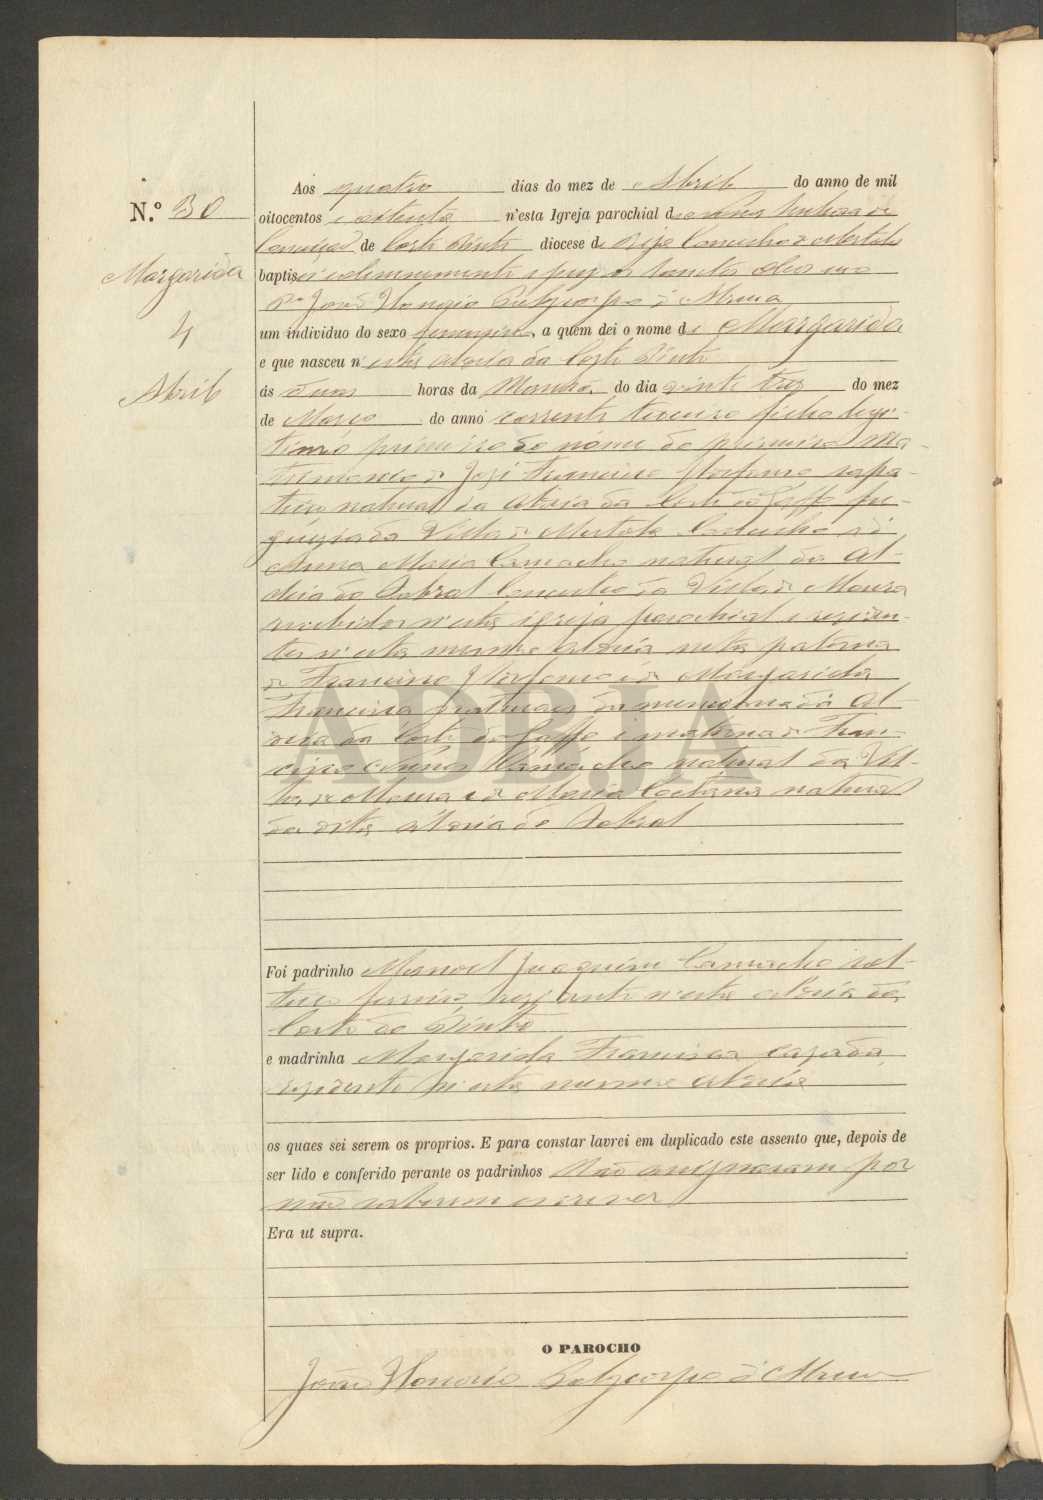 Aos quatro dias do mez de Abril do anno de mil
N.º 30
oitocentos e oitenta n'esta Igreja parochial de Nossa Senhora da
Conceição de Corte Pinto diocese de Beja Concelho de Mertola
Margarida
baptisei solemnemente e puz os Santos Oleos eu o
P.e João Honorio Polycarpo d'Abreu
4
um individuo do sexo femenino a quem dei o nome de Margarida
e que nasceu n'esta Aldeia da Corte Pinto
Abril
ás duas horas da Manhã do dia vinte trez do mez
de Março do anno corrente terceiro filho legi-
timo primeiro do nome do primeiro ma-
trimonio de José Francisco sapa-
teiro natural da Aldeia da Corte do Gaffo fre-
guezia da Villa de Mertola Concelho e de
Anna Maria Camacho natural da Al-
deia do Sobral Concelho da Villa de Moura
recebidos n'esta igreja parochial e reziden-
tes n'esta mesma aldeia neta paterna
de Francisco e de Margarida
Francisca naturaes da mencionada Al-
deia da Corte do Gaffo e materna de Fran-
cisco Camacho natural da Vil-
la de Moura e de Maria Caetana natural
da dita Aldeia do Sobral
ADBJA
Foi padrinho Manoel Joaquim Camacho sol-
teiro rezidente n'esta Aldeia da
Corte do Pinto
e madrinha Margarida Francisca cazada
rezidente n'esta mesma Aldeia
os quaes sei serem os proprios. E para constar lavrei em duplicado este assento que, depois de
ser lido e conferido perante os padrinhos Não assignaram por
não saberem escrever
Era ut supra.
O PAROCHO
João Honorio Polycarpo d'Abreu